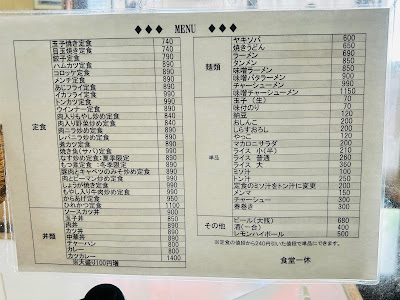 ◆◆◆ MENU ◆◆◆
定食
玉子焼き定食 740
目玉焼き定食 740
餃子定食 790
ハムカツ定食 890
コロッケ定食 890
メンチ定食 890
あじフライ定食 890
イカフライ定食 990
トンカツ定食 990
ウインナー定食 890
肉入りもやし炒め定食 890
肉入り野菜炒め定食 890
肉ニラ炒め定食 890
レバニラ炒め定食 890
煮カツ定食 990
焼魚(サバ)定食 990
なす炒め定食:夏季限定 890
もつ煮定食:冬季限定 890
豚肉とキャベツのみそ炒め定食 890
肉とピーマン炒め定食 990
しょうが焼き定食 990
もやし入り牛肉炒め定食 990
からあげ定食 950
ひれかつ定食 1100
丼類
ソースカツ丼 900
玉子丼 850
肉丼 890
カツ丼 890
中華丼 890
チャーハン 800
カレー 800
カツカレー 1400
※大盛り100円増
麺類
ヤキソバ 600
焼きうどん 650
ラーメン 690
タンメン 850
味噌ラーメン 850
味噌バタラーメン 900
チャーシューメン 950
味噌チャーシューメン 1150
単品
玉子(生) 70
味付のり 70
納豆 120
おしんこ 200
しらすおろし 200
やっこ 200
マカロニサラダ 200
ライス 小(半) 210
ライス 普通 260
ライス 大 360
ミソ汁 100
トン汁 250
定食のミソ汁をトン汁に変更 200
メンマ 200
チャーシュー 300
春巻き 300
その他
ビール(大瓶) 680
酒(一合) 400
レモンハイボール 500
※定食の値段から240円引いた値段で単品にできます。
食堂一休